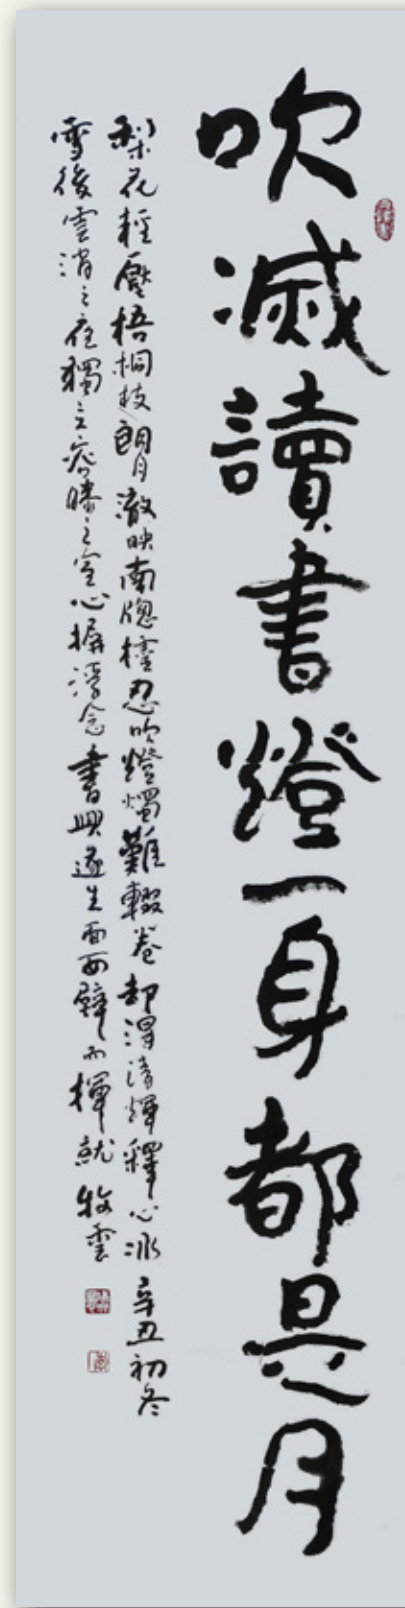 吹滅讀書燈一身都是月
梨花輕壓梧桐枝朗月澈映南窗檯忍吹燈燭難輟卷却得清輝釋心冰 辛丑初冬
雪後雲消之夜獨立之空心摒念書興遂生面西壁而揮就 牧雲